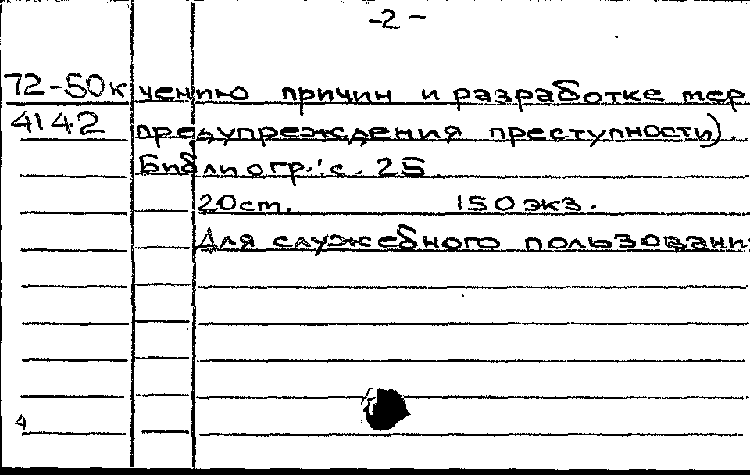 -2-
72-50к чению причин и разработке мер
4142 предупреждения преступности).
Библиогр.: с. 25.
20 ст. 150 экз.
Для служебного пользовани
4